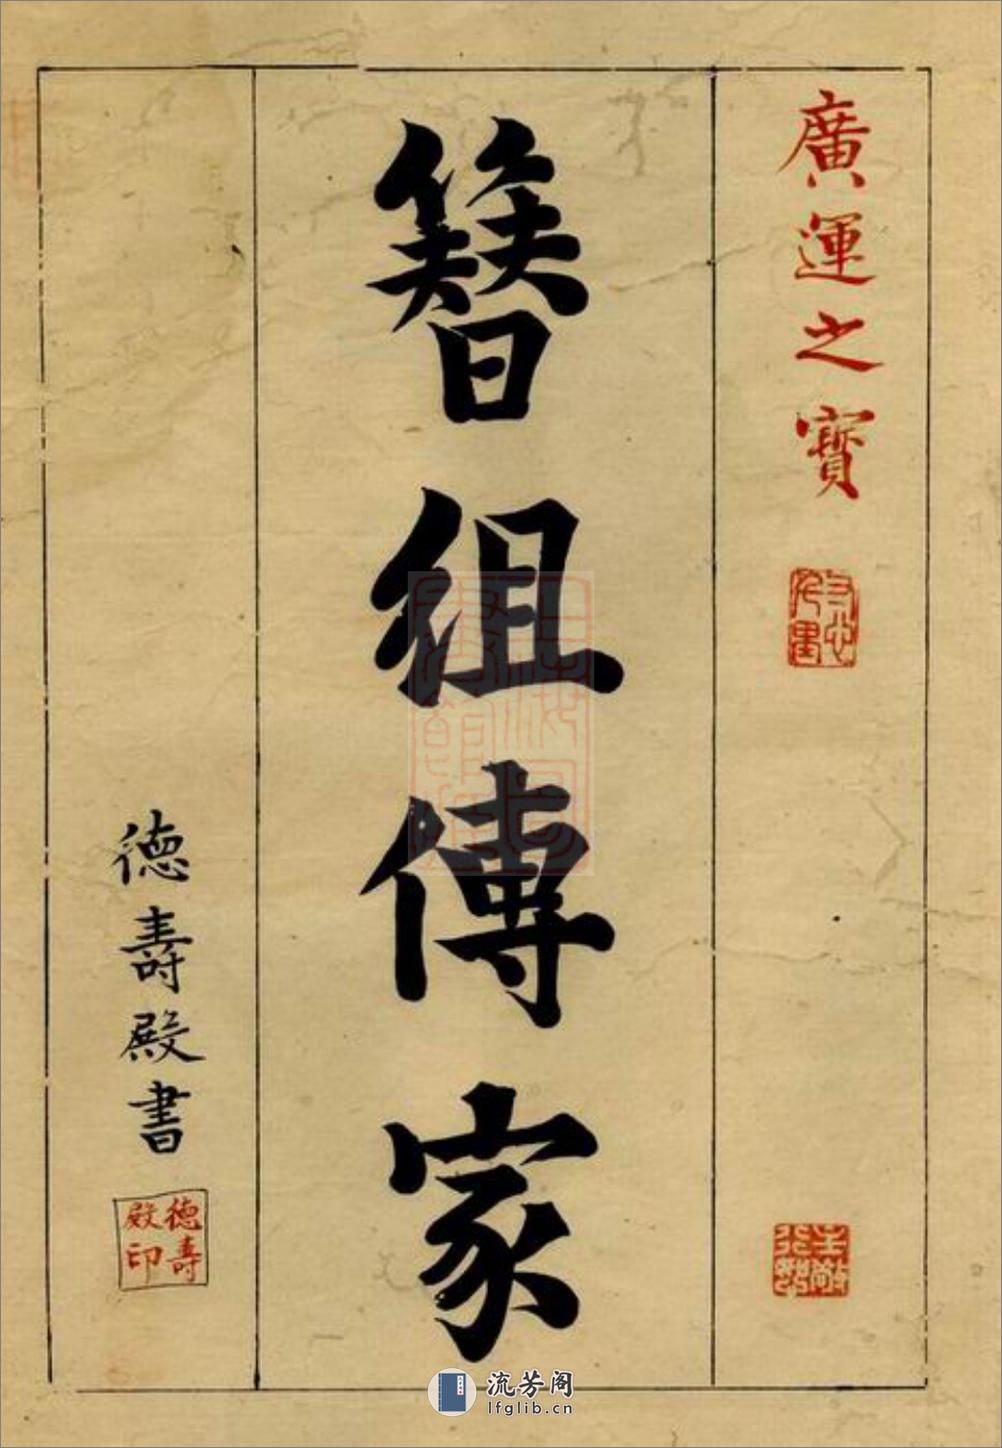 廣運之寶
簪組傳家
德壽殿書
德壽
殿印
流芳阁
lfglib.cn